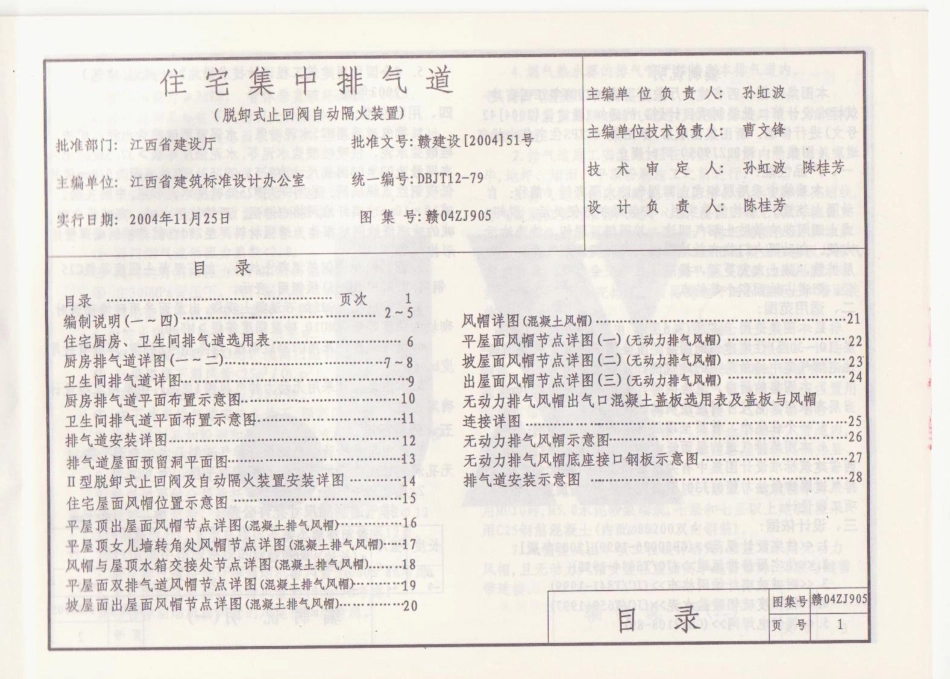 住宅集中排气道
(脱卸式止回阀自动隔火装置)
批准部门: 江西省建设厅
批准文号:赣建设[2004]51号
主编单位: 江西省建筑标准设计办公室
统一编号:DBJT12-79
实行日期: 2004年11月25日
图 集 号:赣04ZJ905
主编单位负责人: 孙虹波
主编单位技术负责人: 曹文锋
技术审定人: 孙虹波 陈桂芳
设计负责人: 陈桂芳
目 录
目录 …… 页次 1
编制说明(一~四) …… 2~5
住宅厨房、卫生间排气道选用表 …… 6
厨房排气道详图(一~二) …… 7~8
卫生间排气道详图 …… 9
厨房排气道平面布置示意图 …… 10
卫生间排气道平面布置示意图 …… 11
排气道安装详图 …… 12
排气道屋面预留洞平面图 …… 13
Ⅱ型脱卸式止回阀及自动隔火装置安装详图 …… 14
住宅屋面风帽位置示意图 …… 15
平屋顶出屋面风帽节点详图(混凝土排气风帽) …… 16
平屋顶女儿墙转角处风帽节点详图(混凝土排气风帽) …… 17
风帽与屋顶水箱交接处节点详图(混凝土排气风帽) …… 18
平屋面双排气道风帽节点详图(混凝土排气风帽) …… 19
坡屋面出屋面风帽节点详图(混凝土排气风帽) …… 20
风帽详图(混凝土风帽) …… 21
平屋面风帽节点详图(一)(无动力排气风帽) …… 22
坡屋面风帽节点详图(二)(无动力排气风帽) …… 23
出屋面风帽节点详图(三)(无动力排气风帽) …… 24
无动力排气风帽出气口混凝土盖板选用表及盖板与风帽
连接详图 …… 25
无动力排气风帽示意图 …… 26
无动力排气风帽底座接口钢板示意图 …… 27
排气道安装示意图 …… 28
目 录
图集号 赣04ZJ905
页 号 1